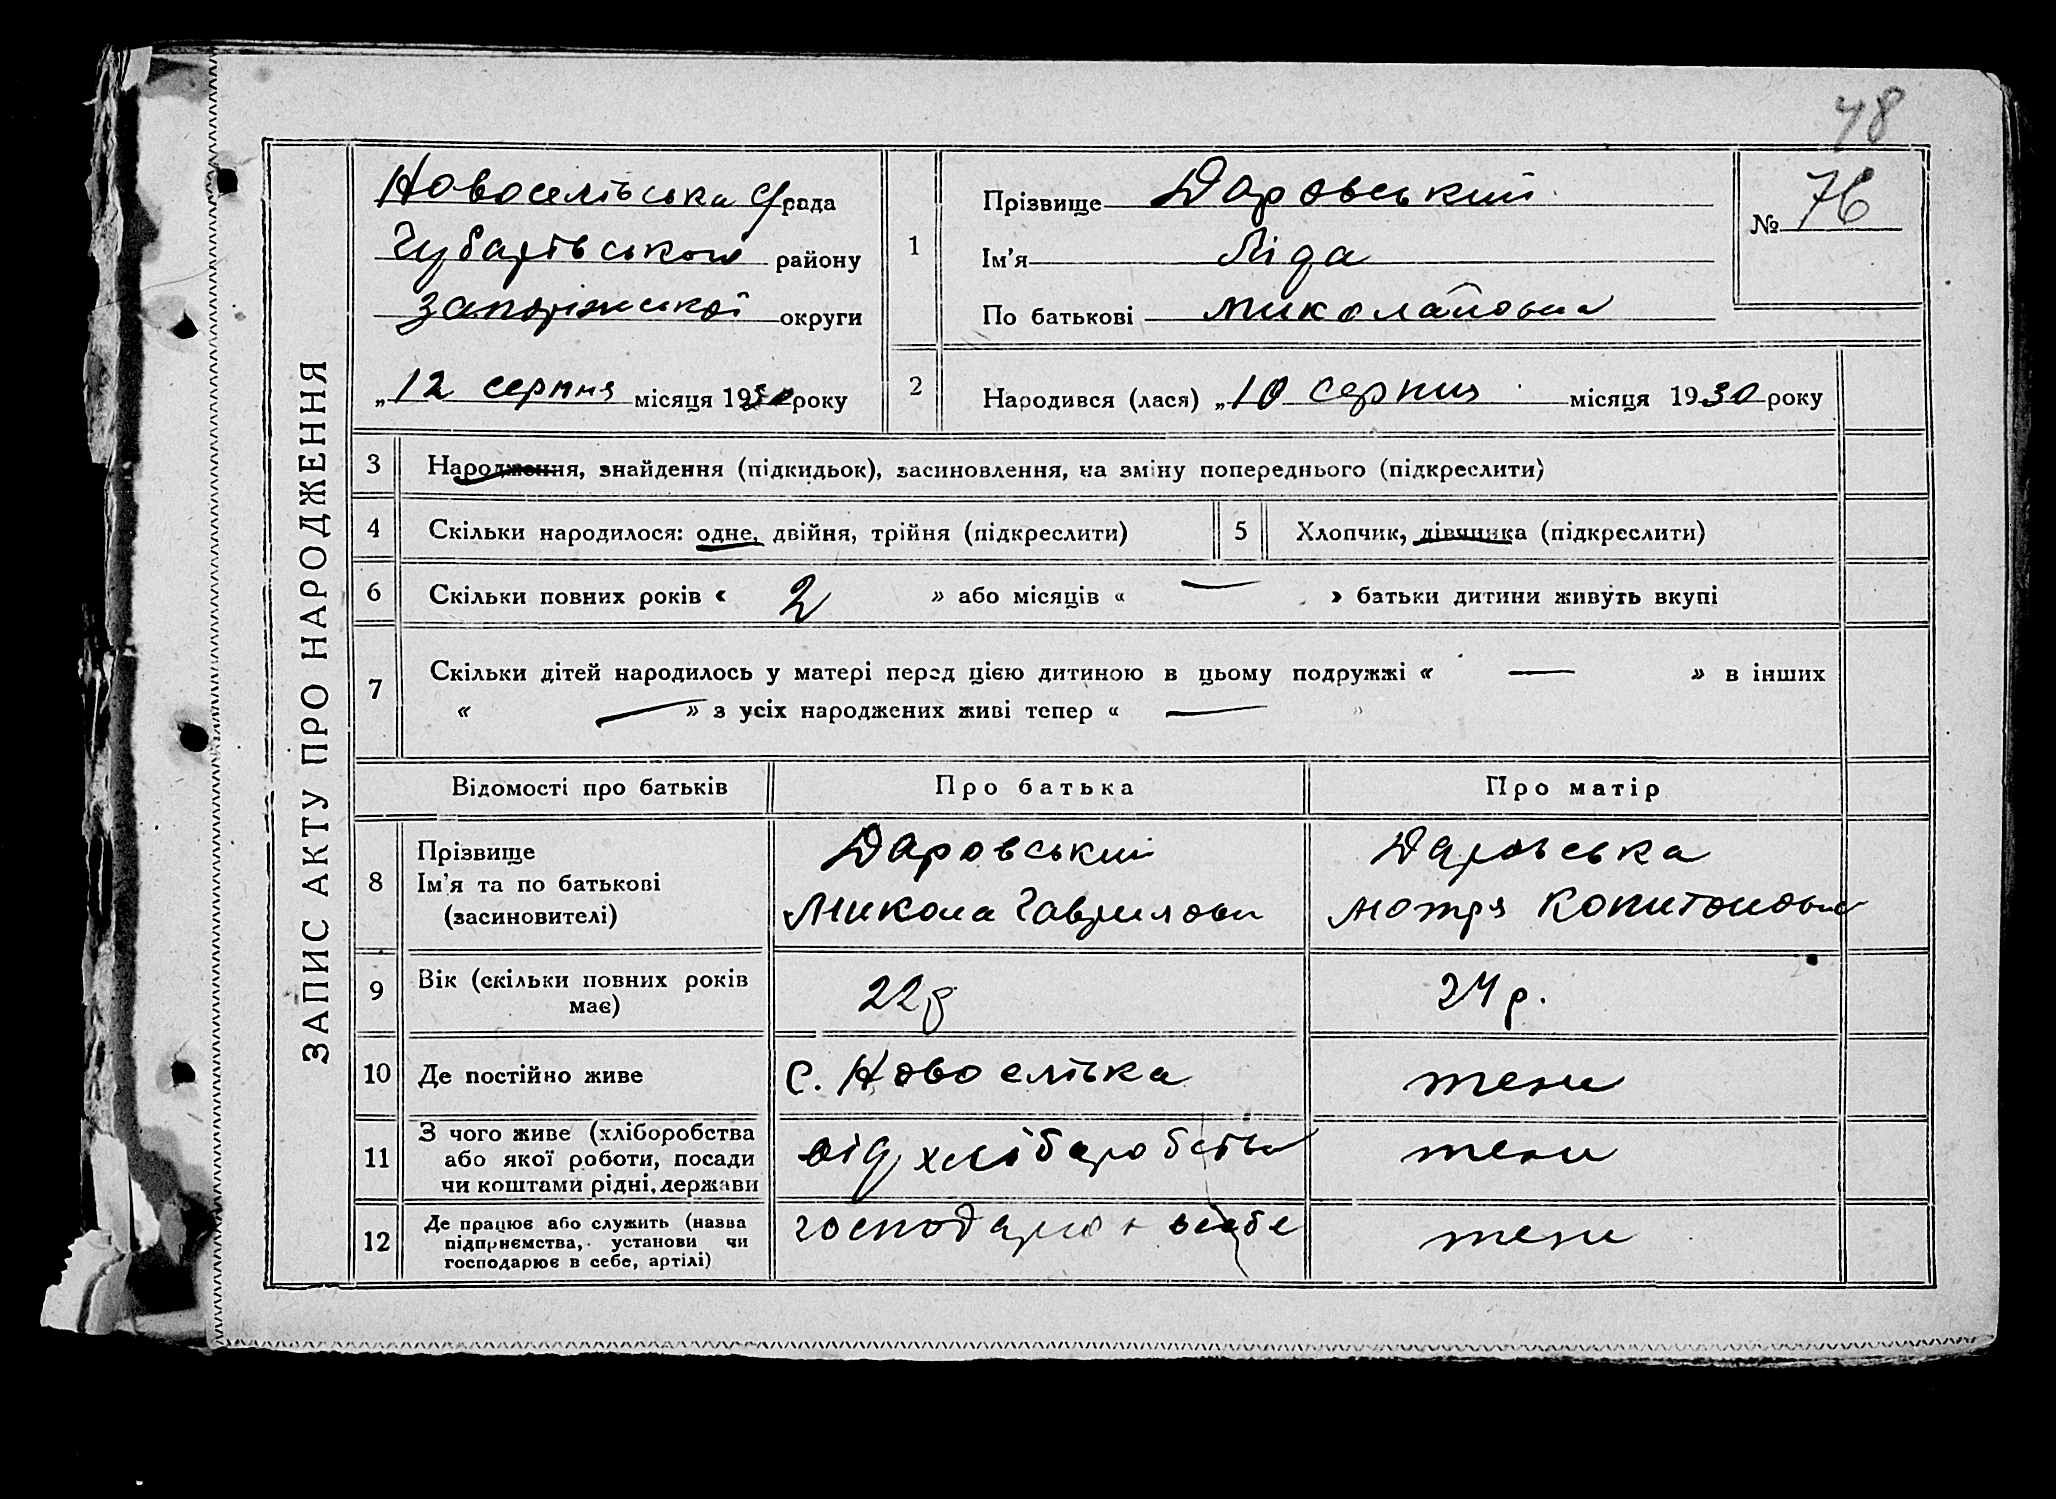 48
ЗАПИС АКТУ ПРО НАРОДЖЕННЯ
Новоселівська С/рада
Губарівського району
Запоріжської округи
„12 серпня місяця 1930 року
1
Прізвище Даровський
Ім'я Ліда
По батькові Миколаївна
№ 76
2
Народився (лася) „10 серпня місяця 1930 року
3 Народження, знайдення (підкидьок), засиновлення, на зміну попереднього (підкреслити)
4 Скільки народилося: одне, двійня, трійня (підкреслити)
5 Хлопчик, дівчинка (підкреслити)
6 Скільки повних років « 2 » або місяців « — » батьки дитини живуть вкупі
7 Скільки дітей народилось у матері перед цією дитиною в цьому подружжі « — » в інших
« — » з усіх народжених живі тепер « — »
Відомості про батьків Про батька Про матір
8 Прізвище
Ім'я та по батькові
(засиновителі)
Даровський
Микола Гаврилови
Даровська
Мотря Копитоновна
9 Вік (скільки повних років
має)
22 р
24 р.
10 Де постійно живе с. Новоселівка тежи
11 З чого живе (хліборобства
або якої роботи, посади
чи коштами рідні, держави
від хліборобства
тежи
12 Де працює або служить (назва
підприємства, установи чи
господарює в себе, артілі)
господарює в себе
тежи